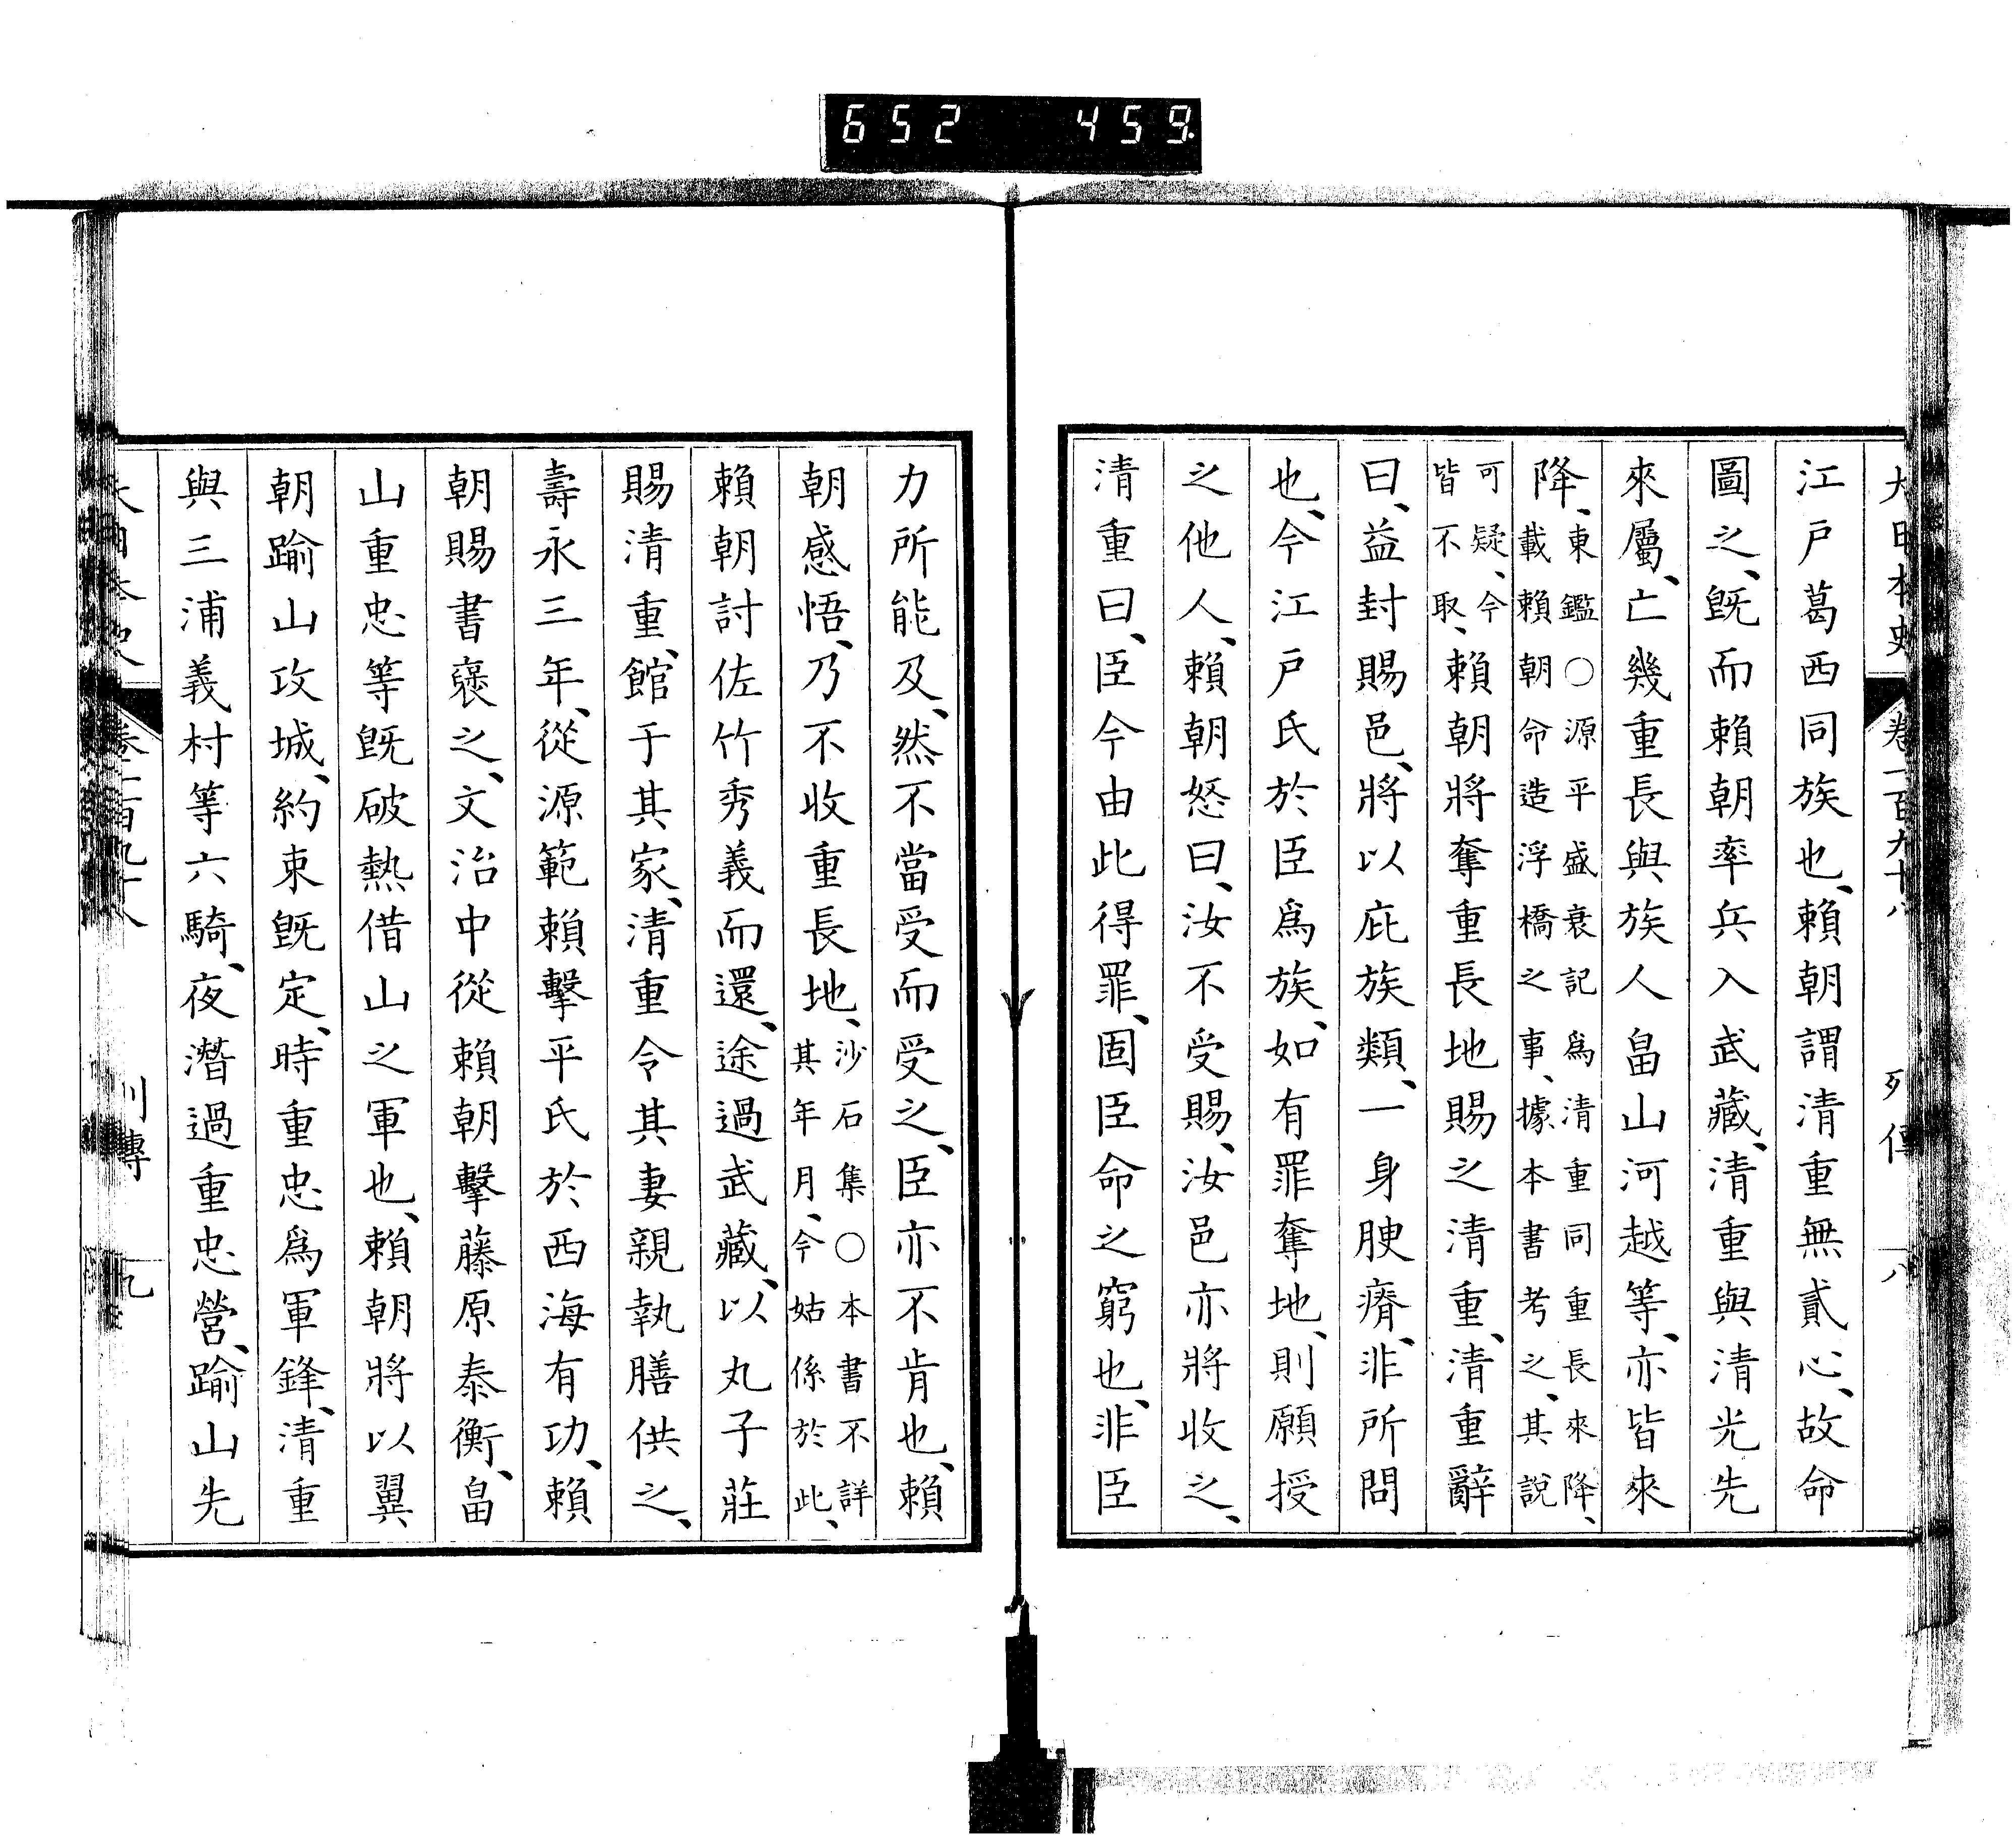 652 459
大日本史 卷一百九十八 列傳 八
江戸葛西同族也、賴朝謂清重無貳心、故命
圖之、既而賴朝率兵入武藏、清重與清光先
來屬、亡幾重長與族人畠山河越等、亦皆來
降、東鑑○源平盛衰記爲清重同重長來降、
載賴朝命造浮橋之事、據本書考之、其說
可疑、今
皆不取、賴朝將奪重長地賜之清重、清重辭
曰、益封賜邑、將以庇族類、一身腴瘠、非所問
也、今江戸氏於臣爲族、如有罪奪地、則願授
之他人、賴朝怒曰、汝不受賜、汝邑亦將收之、
清重曰、臣今由此得罪、固臣命之窮也、非臣
力所能及、然不當受而受之、臣亦不肯也、賴
朝感悟、乃不收重長地、沙石集○本書不詳
其年月、今姑係於此、
賴朝討佐竹秀義而還、途過武藏、以丸子莊
賜清重、館于其家、清重令其妻親執膳供之、
壽永三年、從源範賴擊平氏於西海有功、賴
朝賜書褒之、文治中從賴朝擊藤原泰衡、畠
山重忠等既破熱借山之軍也、賴朝將以翼
朝踰山攻城、約束既定、時重忠爲軍鋒、清重
與三浦義村等六騎、夜潛過重忠營、踰山先
大日本史 卷一百九十八 列傳 九